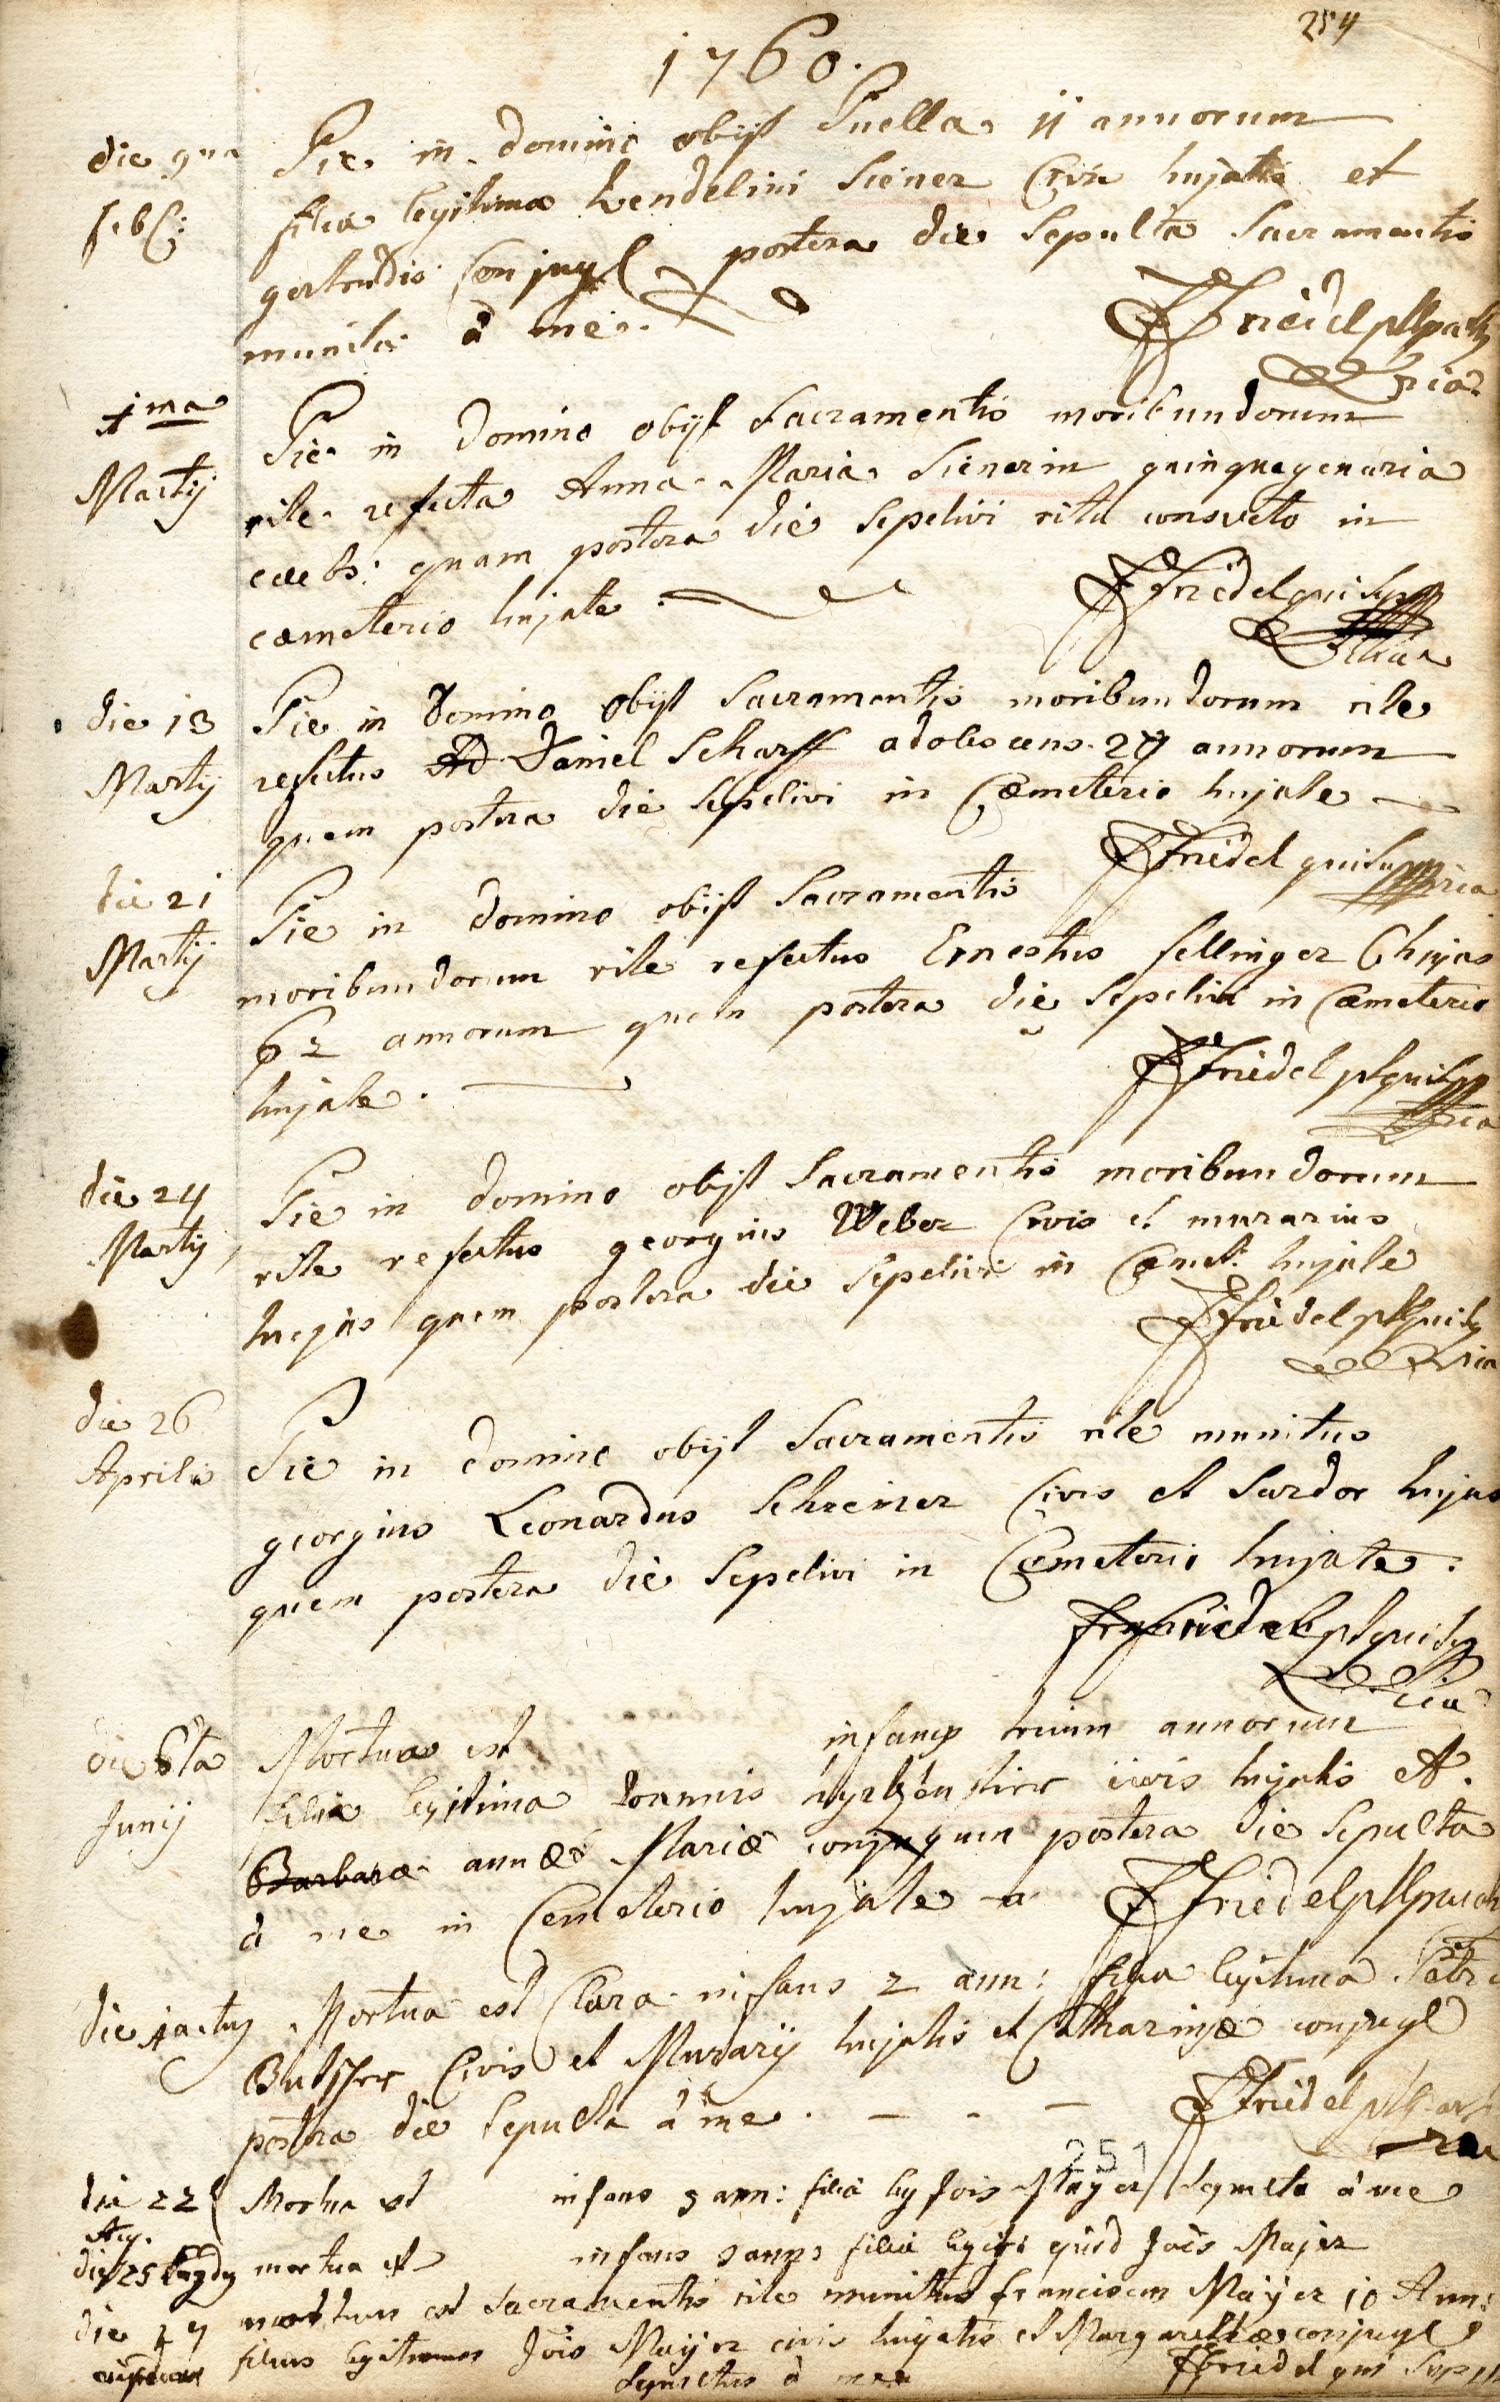 254
1760.
die 9na
febr:
Pie in domino obijt Puella 11 annorum
filia legitima Wendelini Siener Civis hujatis et
gertrudis Conjugl postera die Sepulta Sacramentis
munita à me.
Friedel
1ma
Martij
Pie in Domino obijt Sacramentis moribundorum
rite refecta Anna Maria Sienerin quinquagenaria
caelebs: quam postera die sepelivi ritu consveto in
cœmeterio hujate.
Friedel qui supra
die 13
Martij
Pie in Domino Obijt Sacramentis moribundorum rite
refectus Daniel Scharff adolescens 27 annorum
quem postera die sepelivi in Cœmeterio hujate
Friedel qui supra
die 21
Martij
Pie in domino obijt Sacramentis
moribundorum rite refectus Ernestus fellinger Ehujas
62 annorum quem postera die sepelivi in Cœmeterio
hujate.
Friedel
die 24
Martij
Pie in domino obijt Sacramentis moribundorum
rite refectus georgius Weber Civis et murarius
hujas quem postera die sepelivi in Cœmet: hujate
Friedel
die 26
Aprilis
Pie in domino obijt Sacramentis rite munitus
georgius Leonardus Schreiner Civis et Sardor hujas
quem postera die Sepelivi in Cœmeterio hujate:
Friedel
die 6ta
Junij
Mortua est infans trium annorum
filia legitima Joannis civis hujatis et
Barbaræ annæ Mariæ postera die Sepulta
à me in Cemeterio hujate
Friedel
die
Mortua est Clara infans 2 ann: filia legitima Petri
Civis et Murarij hujatis et Catharinæ conjugl
postera die Sepulta à me.
Friedel
251
die 22
Mortua est infans 3 ann: filia leg Jois Mayer Sepulta à me
die 25
mortua est infans 3 ann: filia legit: Jois Majer
die 29
mortuus est Sacramentis rite munitus franciscus Mayer 10 Ann:
filius legitimus Jois Mayer civis hujatis et Margarethæ conjugl
Sepultus à me
Friedel qui supra